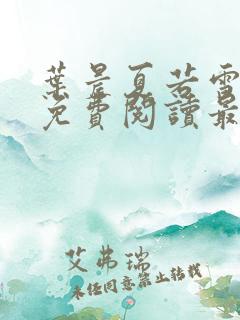 葉晨夏若雪
免費閱讀最
艾弗瑞
未經同意禁止轉載